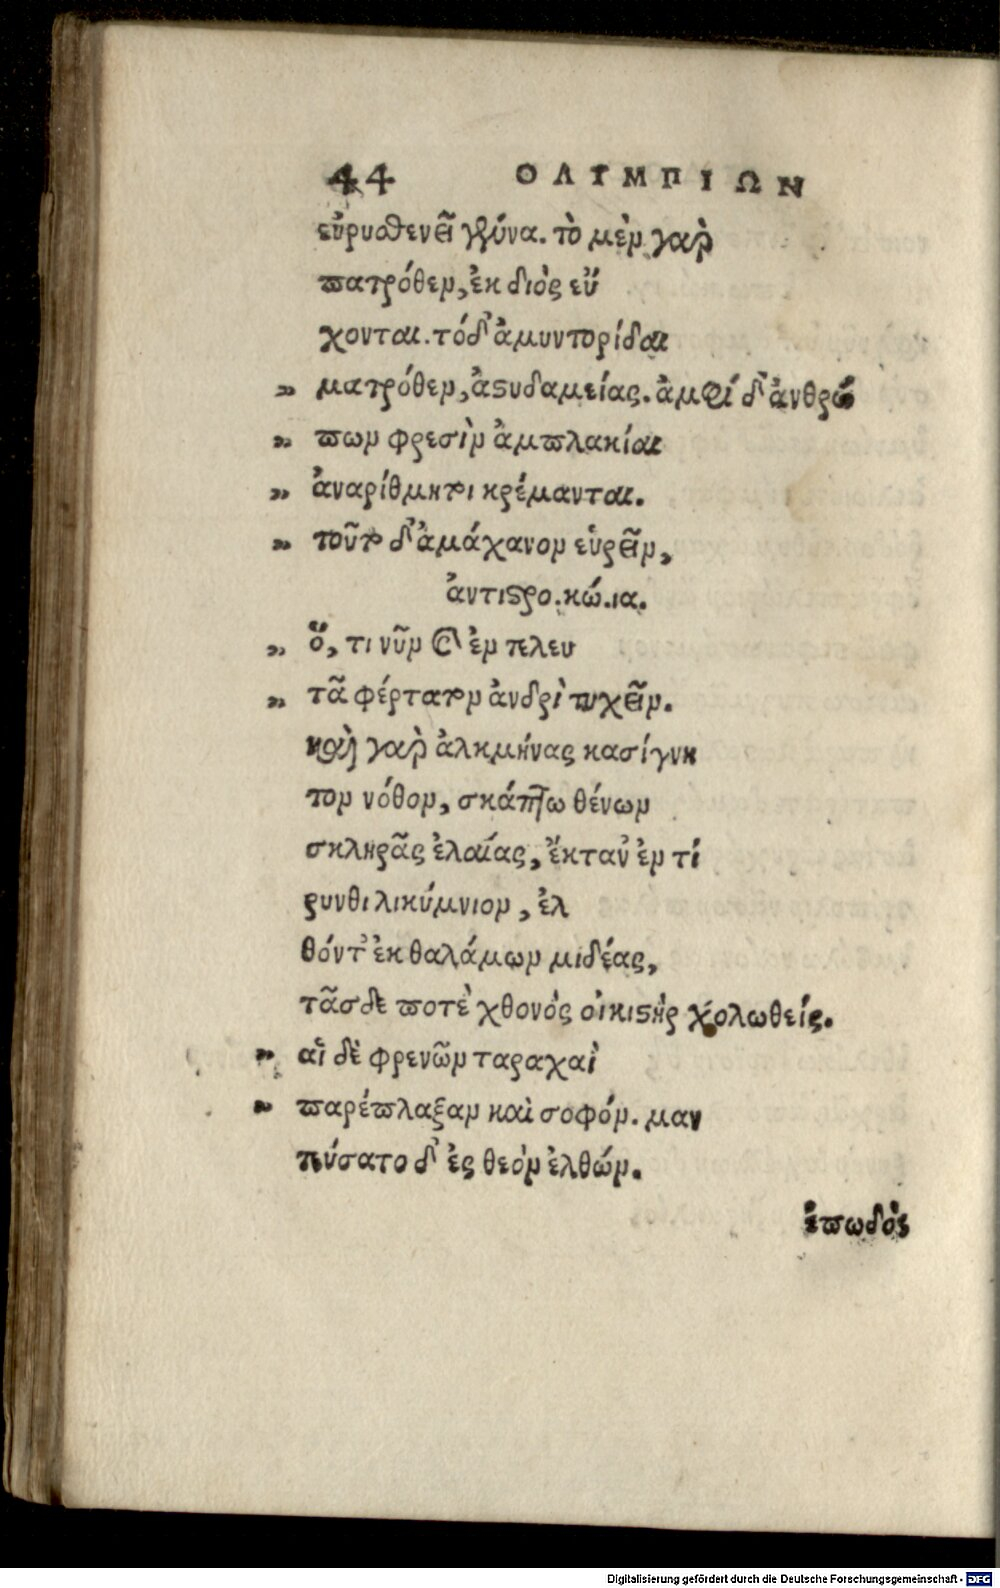 44 ΟΛΥΜΠΙΩΝ
εὐρυσθενεῖ γέννα. τὸ μὲν γὰρ
πατρόθεν, ἐκ διὸς εὔ
χονται. τὸ δ' ἀμυντορίδαι
„ ματρόθεν, ἀστυδαμείας. ἀμφὶ δ' ἀνθρώ
„ πων φρεσὶν ἀμπλακίαι
„ ἀναρίθμητοι κρέμανται.
„ τοῦτο δ' ἀμάχανον εὑρεῖν,
ἀντιστρο. κώ. ια.
„ ὅ, τι νῦν καὶ ἐν τελευ
„ τᾷ φέρτατον ἀνδρὶ τυχεῖν.
καὶ γὰρ ἀλκμήνας κασίγνη
τον νόθον, σκάπτω θένων
σκληρᾶς ἐλαίας, ἔκταν' ἐν τί
ρυνθι λικύμνιον, ἐλ
θόντ' ἐκ θαλάμων μιδέας,
τᾶσδε ποτὲ χθονὸς οἰκιστὴρ χολωθείς.
„ αἱ δὲ φρενῶν ταραχαὶ
„ παρέπλαξαν καὶ σοφόν. μαν
τεύσατο δ' ἐς θεὸν ἐλθών.
ἐπωδὸς
Digitalisierung gefördert durch die Deutsche Forschungsgemeinschaft - DFG